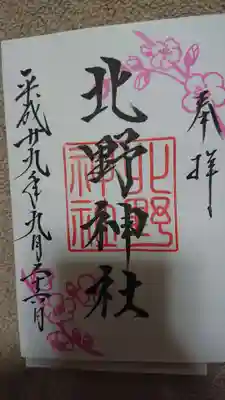 奉拝
北野神社
北野神社
平成廿九年九月二十六日